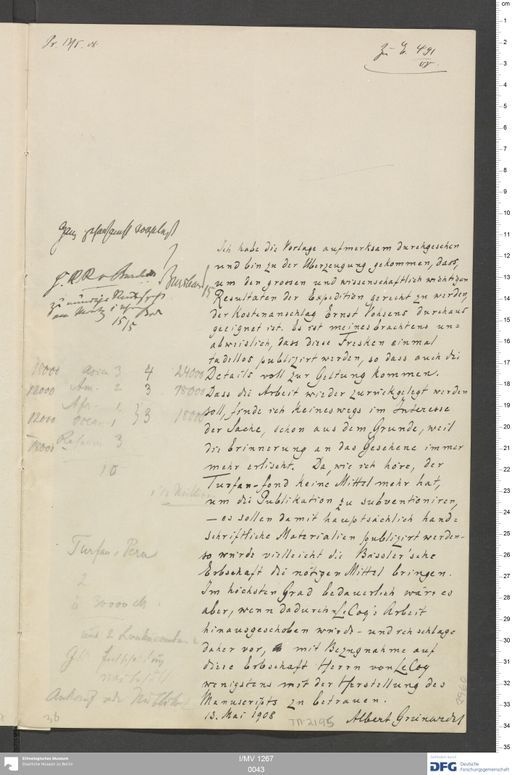 Pr. 13/5. 08
zu E. 491/08
Ganz gehorsamst vorgelegt
15/5
Ich habe die Vorlage aufmerksam durchgesehen
und bin zu der Überzeugung gekommen, dass,
um den grossen und wissenschaftlich wichtigen
Resultaten der Expedition gerecht zu werden,
der Kostenanschlag Ernst Vohsens durchaus
geeignet ist. Es ist meines Erachtens un=
abweislich, dass diese Fresken einmal
tadellos publizirt werden, so dass auch die
Details voll zur Geltung kommen.
Dass die Arbeit wieder zurückgelegt werden
soll, finde ich keineswegs im Interesse
der Sache, schon aus dem Grunde, weil
die Erinnerung an das Gesehene immer
mehr erlischt. Da, wie ich höre, der
Turfan-fond keine Mittel mehr hat,
um die Publikation zu subventioniren,
— es sollen damit hauptsächlich hand=
schriftliche Materialien publizirt werden—
so würde vielleicht die Bässler'sche
Erbschaft die nötigen Mittel bringen.
Im höchsten Grad bedauerlich wäre es
aber, wenn dadurch LeCoq's Arbeit
hinausgeschoben würde - und ich schlage
daher vor, mit Bezugnahme auf
diese Erbschaft Herrn von LeCoq
wenigstens mit der Herstellung des
Manuscripts zu betrauen.
13. Mai 1908 Albert Grünwedel
18000 Asien 3 4 24000
12000 Am. 2 3 18000
Afr. 1 } 3 18000
12000 Ocea. 1
18000 Reserve 3
10
Turfan u Peru
2
à 30000 M.
TA 2195
36
Ethnologisches Museum
Staatliche Museen zu Berlin
I/MV 1267
0043
DFG Deutsche
Forschungsgemeinschaft
cm
1
2
3
4
5
6
7
8
9
10
11
12
13
14
15
16
17
18
19
20
21
22
23
24
25
26
27
28
29
30
31
32
33
34
35